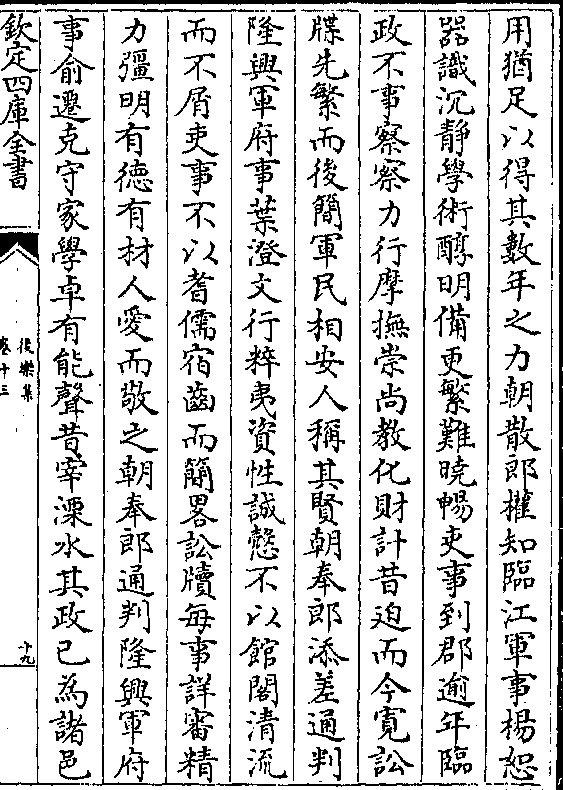 用猶足以得其數年之力朝散郎權知臨江軍事楊恕
器識沉静學術醇明備更繁難曉暢吏事到郡逾年臨
政不事察察力行摩撫崇尚教化財計昔迫而今寛訟
牒先繁而後簡軍民相安人稱其賢朝奉郎添差通判
隆興軍府事葉澄文行粹夷資性誠慤不以館閣清流
而不屑吏事不以耆儒宿齒而簡畧訟牘每事詳審精
力彊明有德有材人愛而敬之朝奉郎通判隆興軍府
事俞遷克守家學卓有能聲昔宰溧水其政已為諸邑
欽定四庫全書
後樂集
卷十三
十九